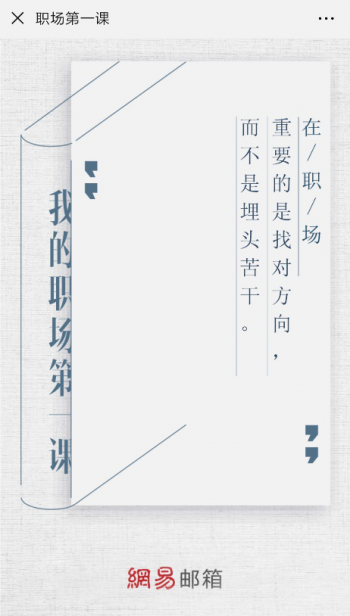 职场第一课
在/职/场
重要的是找对方向，
而不是埋头苦干。
我的职场第一课
網易邮箱